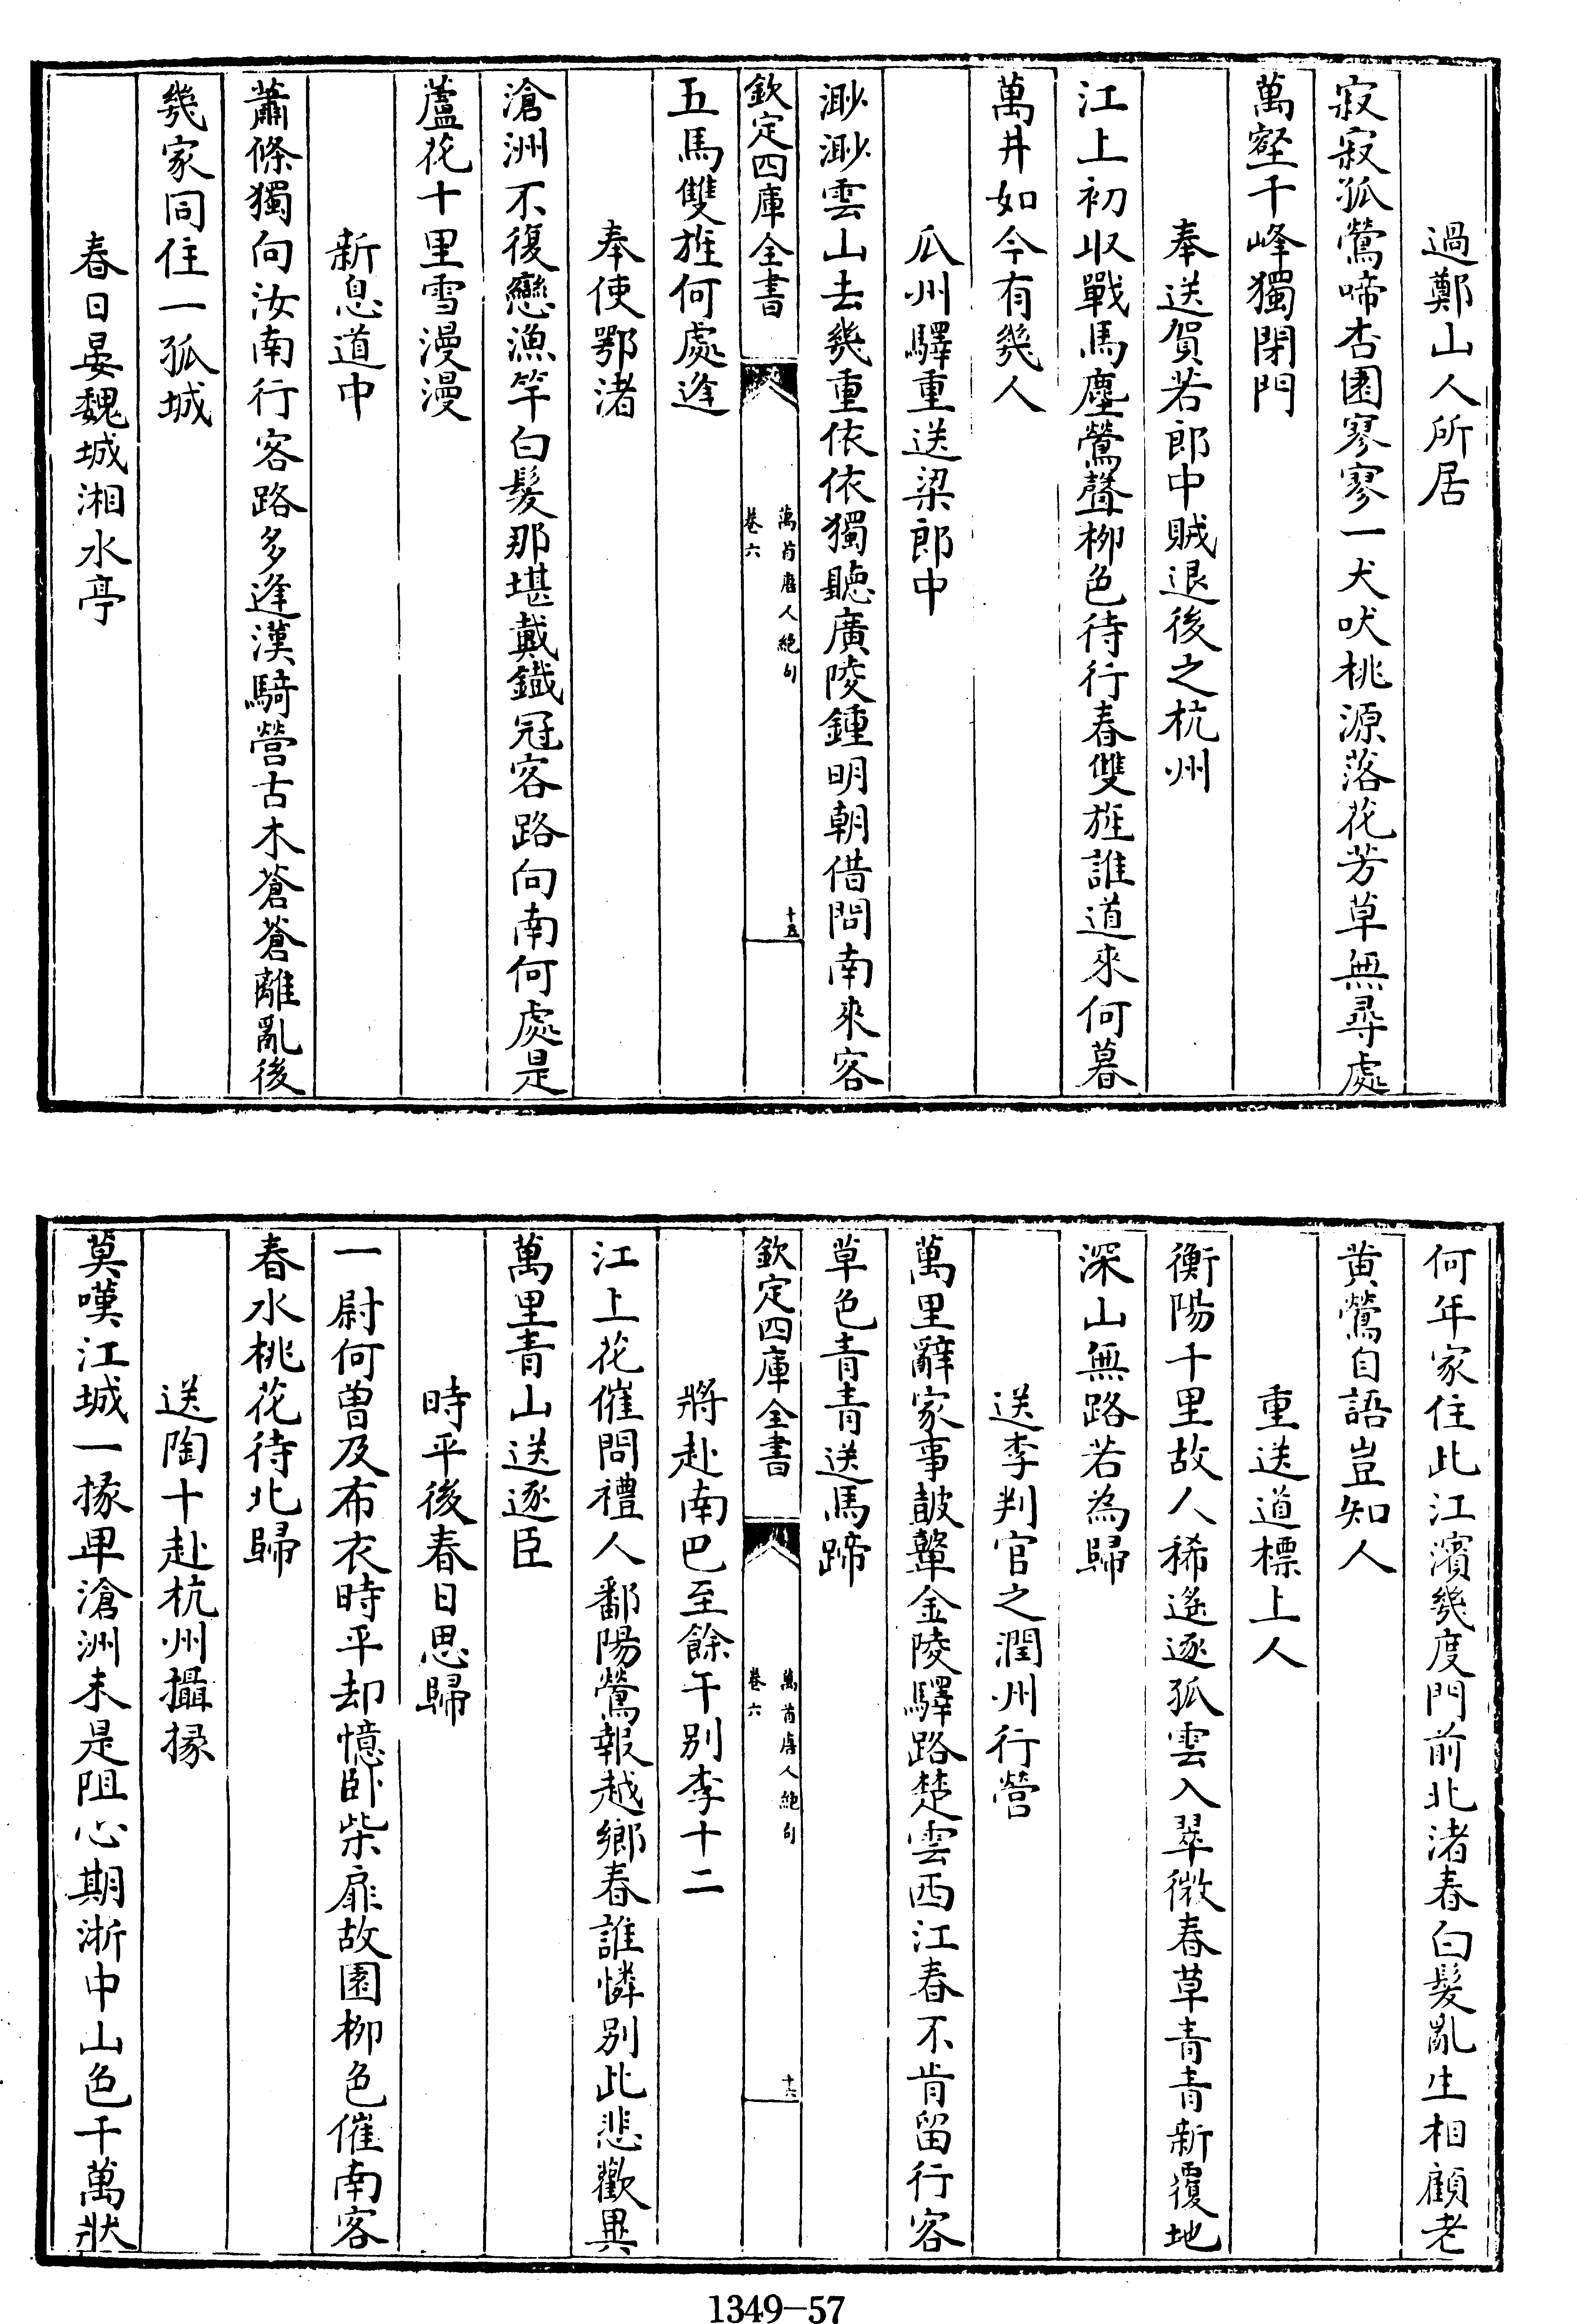 過鄭山人所居
寂寂孤鶯啼杏園寥寥一犬吠桃源落花芳草無尋處
萬壑千峰獨閉門
奉送賀若郎中賊退後之杭州
江上初收戰馬塵鶯聲柳色待行春雙旌誰道來何暮
萬井如今有幾人
瓜州驛重送梁郎中
渺渺雲山去幾重依依獨聽廣陵鍾明朝借問南來客
欽定四庫全書
萬首唐人絶句
卷六
十五
五馬雙旌何處逢
奉使鄂渚
滄洲不復戀漁竿白髮那堪戴鐵冠客路向南何處是
蘆花十里雪漫漫
新息道中
蕭條獨向汝南行客路多逢漢騎營古木蒼蒼離亂後
幾家同住一孤城
春日晏魏城湘水亭
何年家住此江濱幾度門前北渚春白髮亂生相顧老
黄鶯自語豈知人
重送道標上人
衡陽千里故人稀遙逐孤雲入翠微春草青青新覆地
深山無路若為歸
送李判官之潤州行營
萬里辭家事鼓鼙金陵驛路楚雲西江春不肯留行客
草色青青送馬蹄
欽定四庫全書
萬首唐人絶句
卷六
十六
將赴南巴至餘干别李十二
江上花催問禮人鄱陽鶯報越鄉春誰憐别此悲歡異
萬里青山送逐臣
時平後春日思歸
一尉何曾及布衣時平却憶卧柴扉故園柳色催南客
春水桃花待北歸
送陶十赴杭州攝掾
莫嘆江城一掾卑滄洲未是阻心期浙中山色千萬狀
1349-57